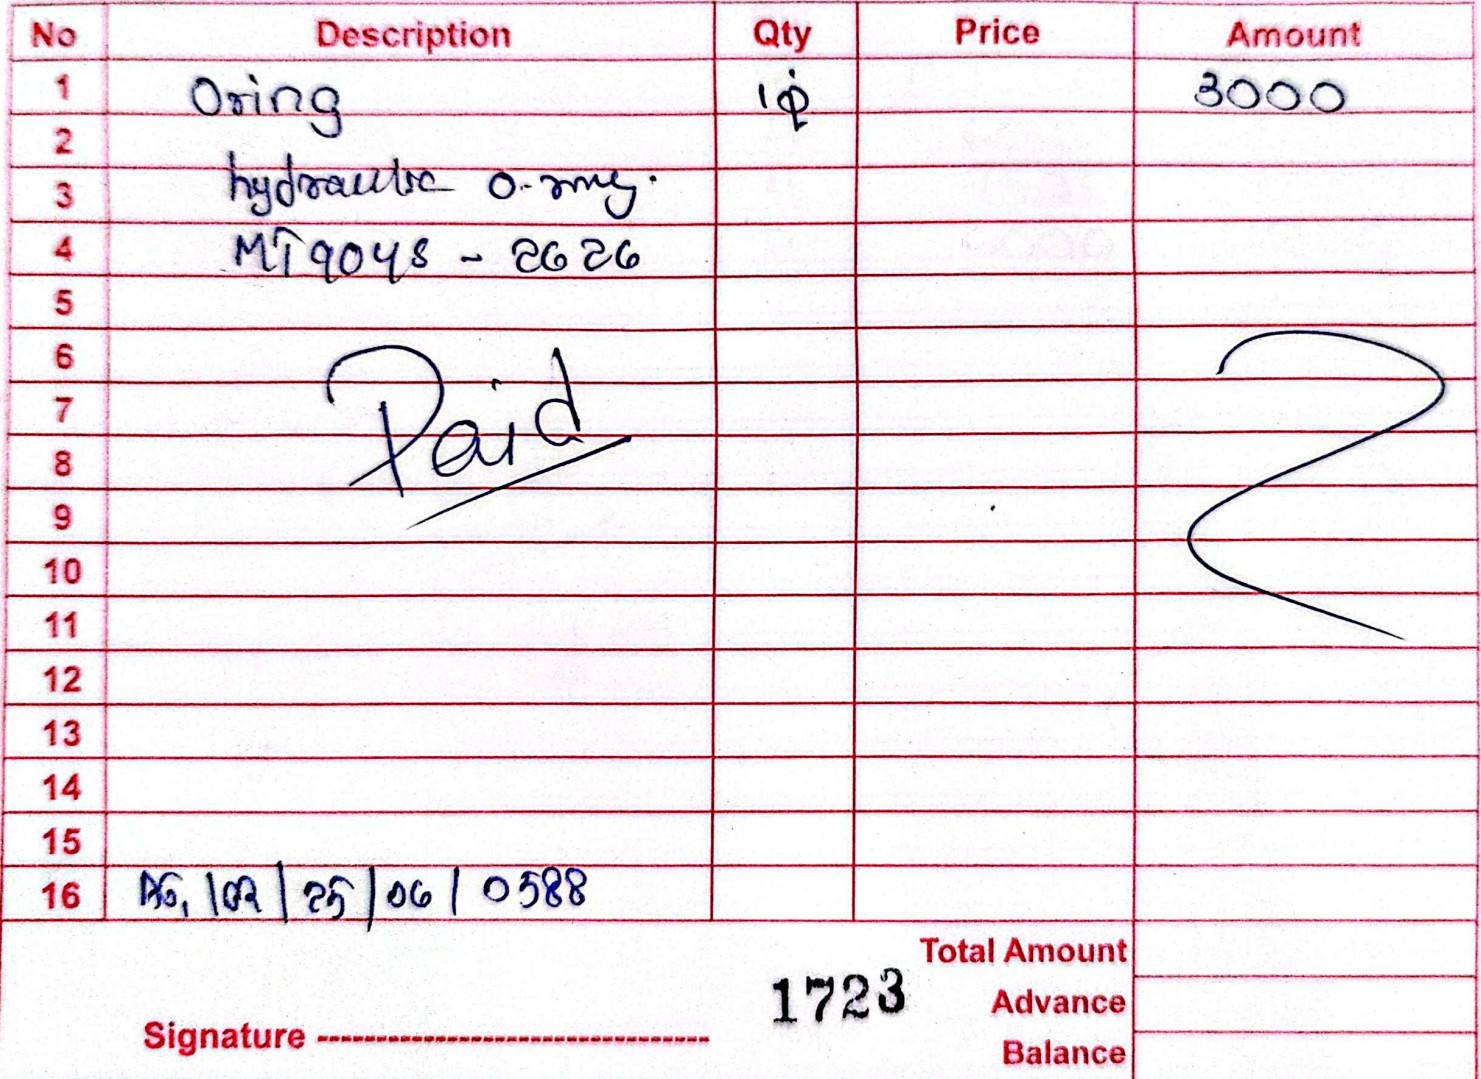 No Description Qty Price Amount
1 Oring 1 3000
2
3 hydraulic o-ring.
4 MT9048 - 2626
5
6
7 Paid
8
9
10
11
12
13
14
15
16 /02/25/06/0588
Total Amount
1723 Advance
Signature ---------------------------------- Balance